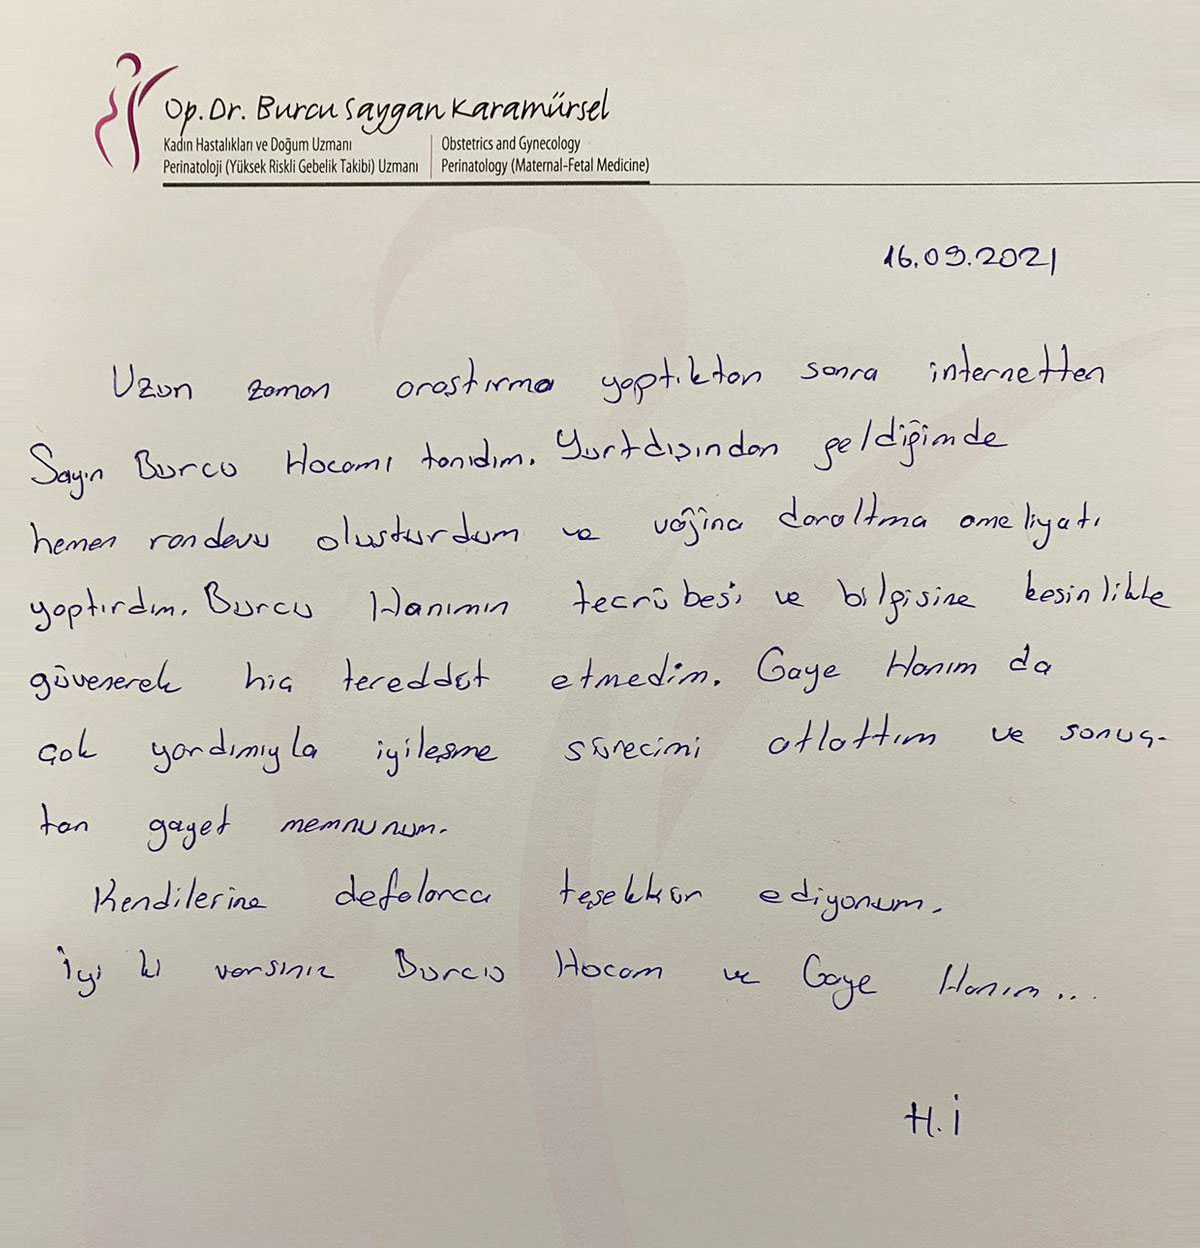 Op. Dr. Burcu Saygan Karamürsel
Kadın Hastalıkları ve Doğum Uzmanı
Perinatoloji (Yüksek Riskli Gebelik Takibi) Uzmanı
Obstetrics and Gynecology
Perinatology (Maternal-Fetal Medicine)
16.09.2021
Uzun zaman araştırma yaptıktan sonra internetten
Sayın Burcu Hocamı tanıdım. Yurtdışından geldiğimde
hemen randevu oluşturdum ve vajina daraltma ameliyatı
yaptırdım. Burcu Hanımın tecrübesi ve bilgisine kesinlikle
güvenerek hiç tereddüt etmedim. Gaye Hanım da
çok yardımıyla iyileşme sürecimi atlattım ve sonuç-
tan gayet memnunum.
Kendilerine defalarca teşekkür ediyorum.
İyi ki varsınız Burcu Hocam ve Gaye Hanım...
H.İ